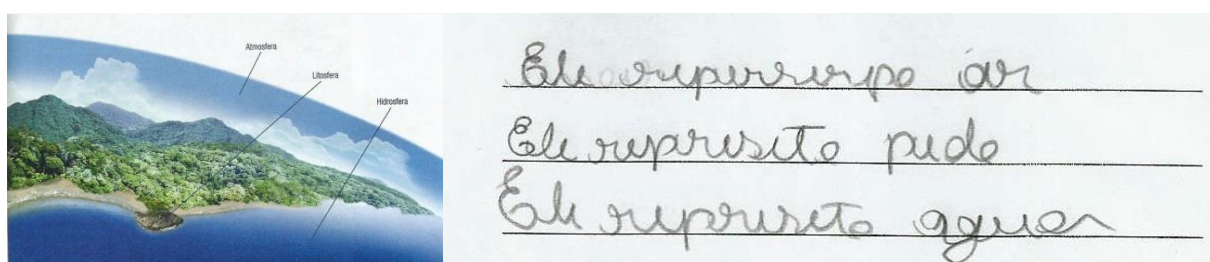 Atmosfera
Litosfera
Hidrosfera
Ele ar
Ele represito pedo
Ele represito agua